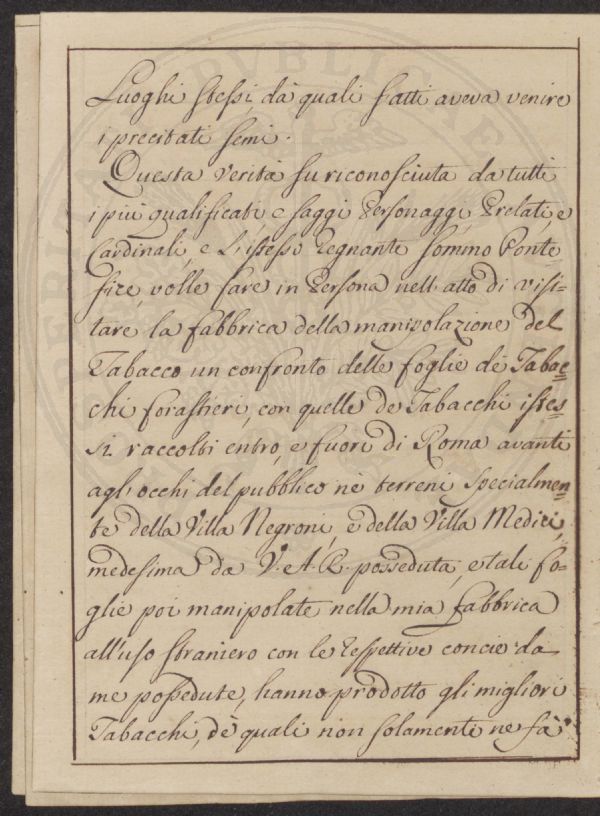 Luoghi stessi da quali fatti aveva venire
i precitati semi.
Questa verità fu riconosciuta da tutti
i più qualificati, e saggi Personaggi, Prelati, e
Cardinali, e L'istesso Regnante Sommo Ponte=
fice, volle fare in Persona nell'atto di visi=
tare la fabbrica della manipolazione del
Tabacco un confronto delle foglie de Tabac=
chi forastieri, con quelle de Tabacchi istes=
si raccolti entro, e fuori di Roma avanti
agl'occhi del pubblico ne terreni specialmen=
te della Villa Negroni, e della Villa Medici,
medesima da V. A. R. posseduta, e tali fo=
glie poi manipolate nella mia fabbrica
all'uso straniero con le respettive concie da
me possedute, hanno prodotto gli migliori
Tabacchi, dè quali non solamente ne fà